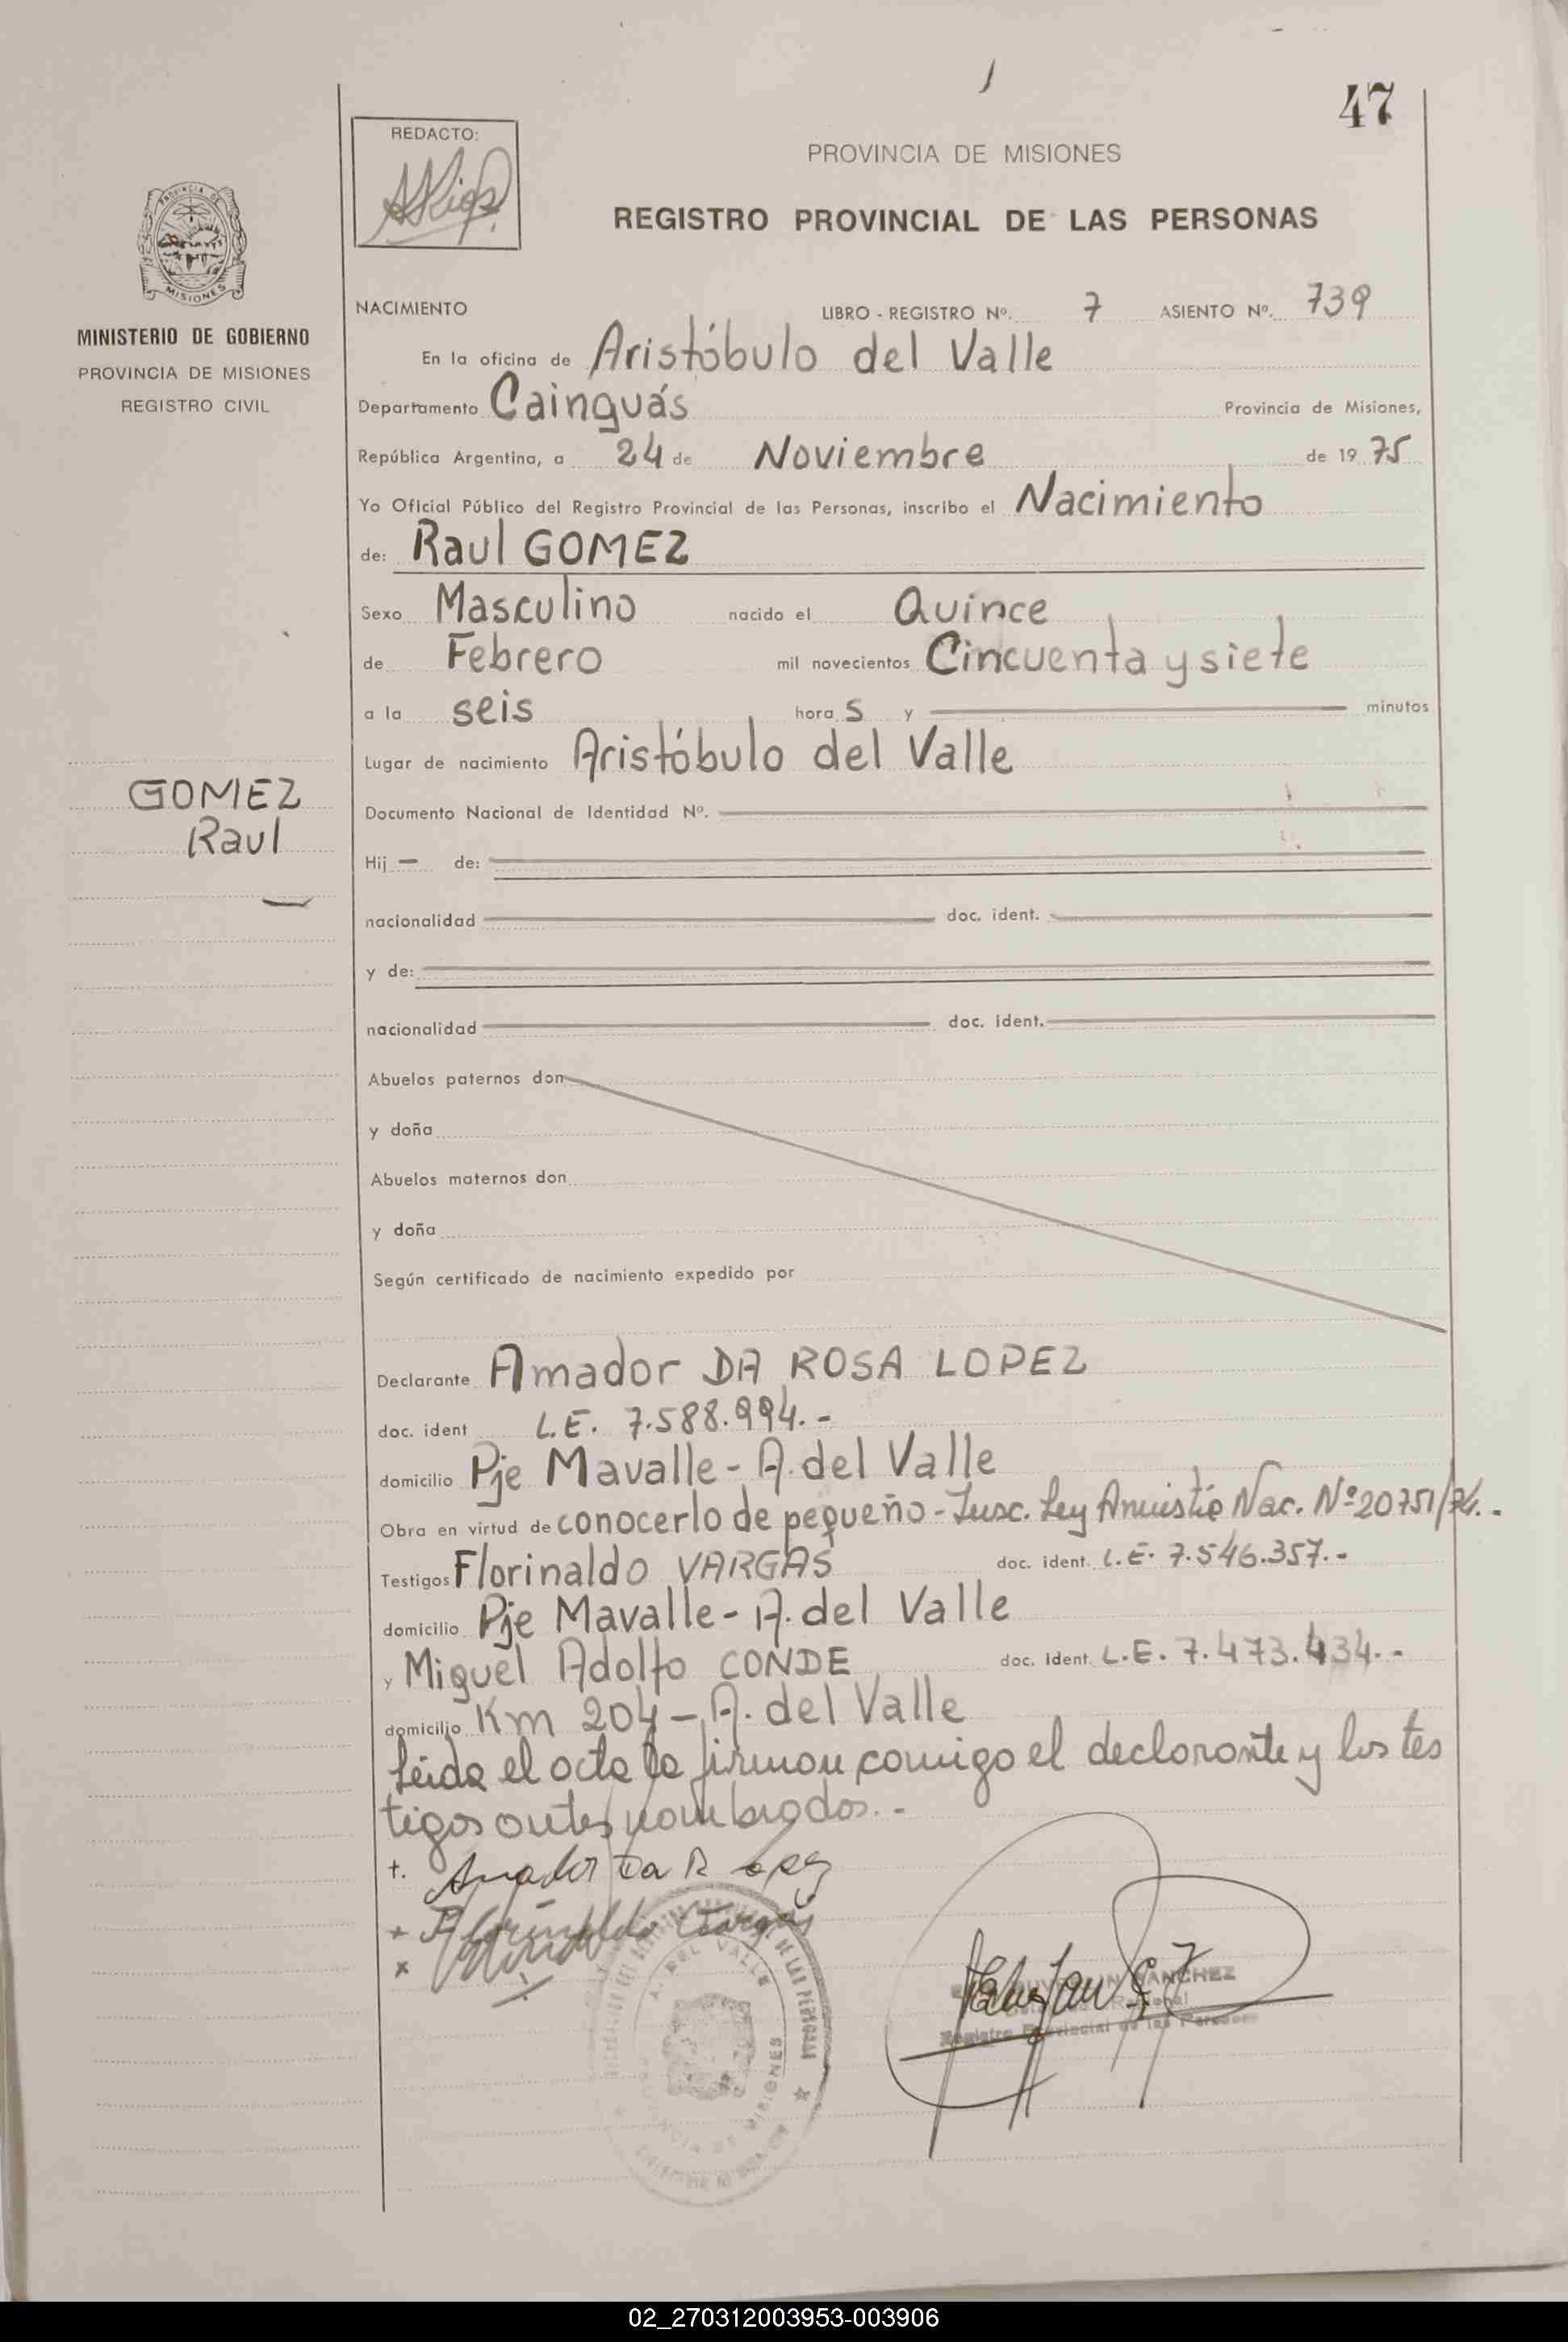 47
REDACTO:
PROVINCIA DE MISIONES
REGISTRO PROVINCIAL DE LAS PERSONAS
PROVINCIA DE
MISIONES
MINISTERIO DE GOBIERNO
PROVINCIA DE MISIONES
REGISTRO CIVIL
NACIMIENTO LIBRO - REGISTRO Nº. 7 ASIENTO Nº. 739
En la oficina de Aristóbulo del Valle
Departamento Cainguás Provincia de Misiones,
República Argentina, a 24 de Noviembre de 19 75
Yo Oficial Público del Registro Provincial de las Personas, inscribo el Nacimiento
de: Raul GOMEZ
Sexo Masculino nacido el Quince
de Febrero mil novecientos Cincuenta y siete
a la seis hora s y minutos
Lugar de nacimiento Aristóbulo del Valle
GOMEZ
Raul
Documento Nacional de Identidad Nº.
Hij — de:
nacionalidad doc. ident.
y de:
nacionalidad doc. ident.
Abuelos paternos don
y doña
Abuelos maternos don
y doña
Según certificado de nacimiento expedido por
Declarante Amador DA ROSA LOPEZ
doc. ident L.E. 7.588.994.-
domicilio Pje Mavalle - A. del Valle
Obra en virtud de conocerlo de pequeño - Insc. Ley Amnistía Nac. Nº 20751/74.-
Testigos Florinaldo VARGAS doc. ident. L.E. 7.546.357.-
domicilio Pje Mavalle - A. del Valle
y Miguel Adolfo CONDE doc. ident. L.E. 7.473.434.-
domicilio Km 204 - A. del Valle
Leida el acta la firman conmigo el declarante y los tes
tigos antes nombrados.-
t. Amador Da R
+ Florinaldo Vargas
x
A. DEL VALLE
DE LAS PERSONAS
MISIONES
SANCHEZ
Registro Provincial de las Personas
02_270312003953-003906